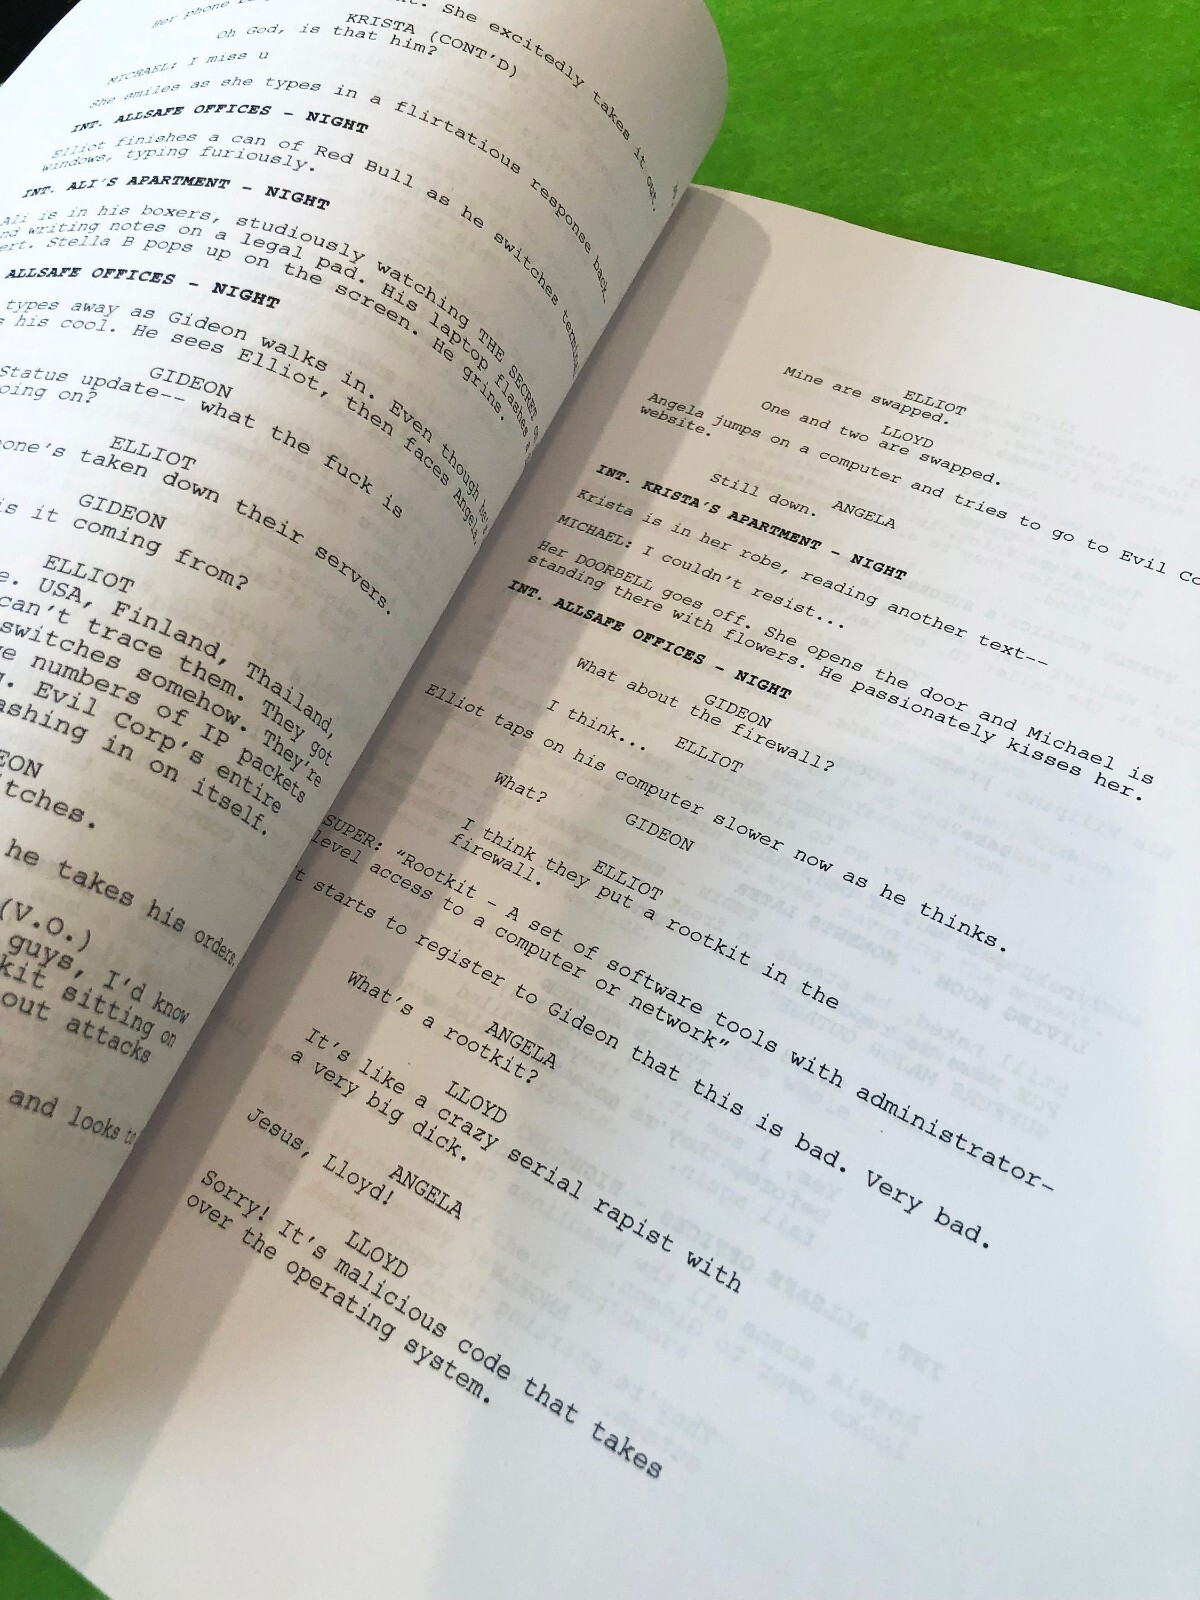 Her phone
She excitedly takes it out.
KRISTA (CONT'D)
Oh God, is that him?
MICHAEL: I miss u
She smiles as she types in a flirtatious response back.
INT. ALLSAFE OFFICES - NIGHT
Elliot finishes a can of Red Bull as he switches
windows, typing furiously.
INT. ALI'S APARTMENT - NIGHT
Ali is in his boxers, studiously watching THE SECRET
writing notes on a legal pad. His laptop flashes
Stella B pops up on the screen. He grins.
ALLSAFE OFFICES - NIGHT
types away as Gideon walks in. Even though
his cool. He sees Elliot, then faces Angela
GIDEON
Status update-- what the fuck is
going on?
ELLIOT
taken down their servers.
GIDEON
is it coming from?
ELLIOT
USA, Finland, Thailand,
can't trace them. They got
switches somehow. They're
numbers of IP packets
Evil Corp's entire
in on itself.
he takes his orders.
(V.O.)
guys, I'd know
sitting on
out attacks
and looks to
ELLIOT
Mine are swapped.
LLOYD
One and two are swapped.
Angela jumps on a computer and tries to go to Evil
website.
ANGELA
Still down.
INT. KRISTA'S APARTMENT - NIGHT
Krista is in her robe, reading another text--
MICHAEL: I couldn't resist...
Her DOORBELL goes off. She opens the door and Michael is
standing there with flowers. He passionately kisses her.
INT. ALLSAFE OFFICES - NIGHT
GIDEON
What about the firewall?
ELLIOT
I think...
Elliot taps on his computer slower now as he thinks.
GIDEON
What?
ELLIOT
I think they put a rootkit in the
firewall.
SUPER: "Rootkit - A set of software tools with administrator-
level access to a computer or network"
starts to register to Gideon that this is bad. Very bad.
ANGELA
What's a rootkit?
LLOYD
It's like a crazy serial rapist with
a very big dick.
ANGELA
Jesus, Lloyd!
LLOYD
Sorry! It's malicious code that takes
over the operating system.